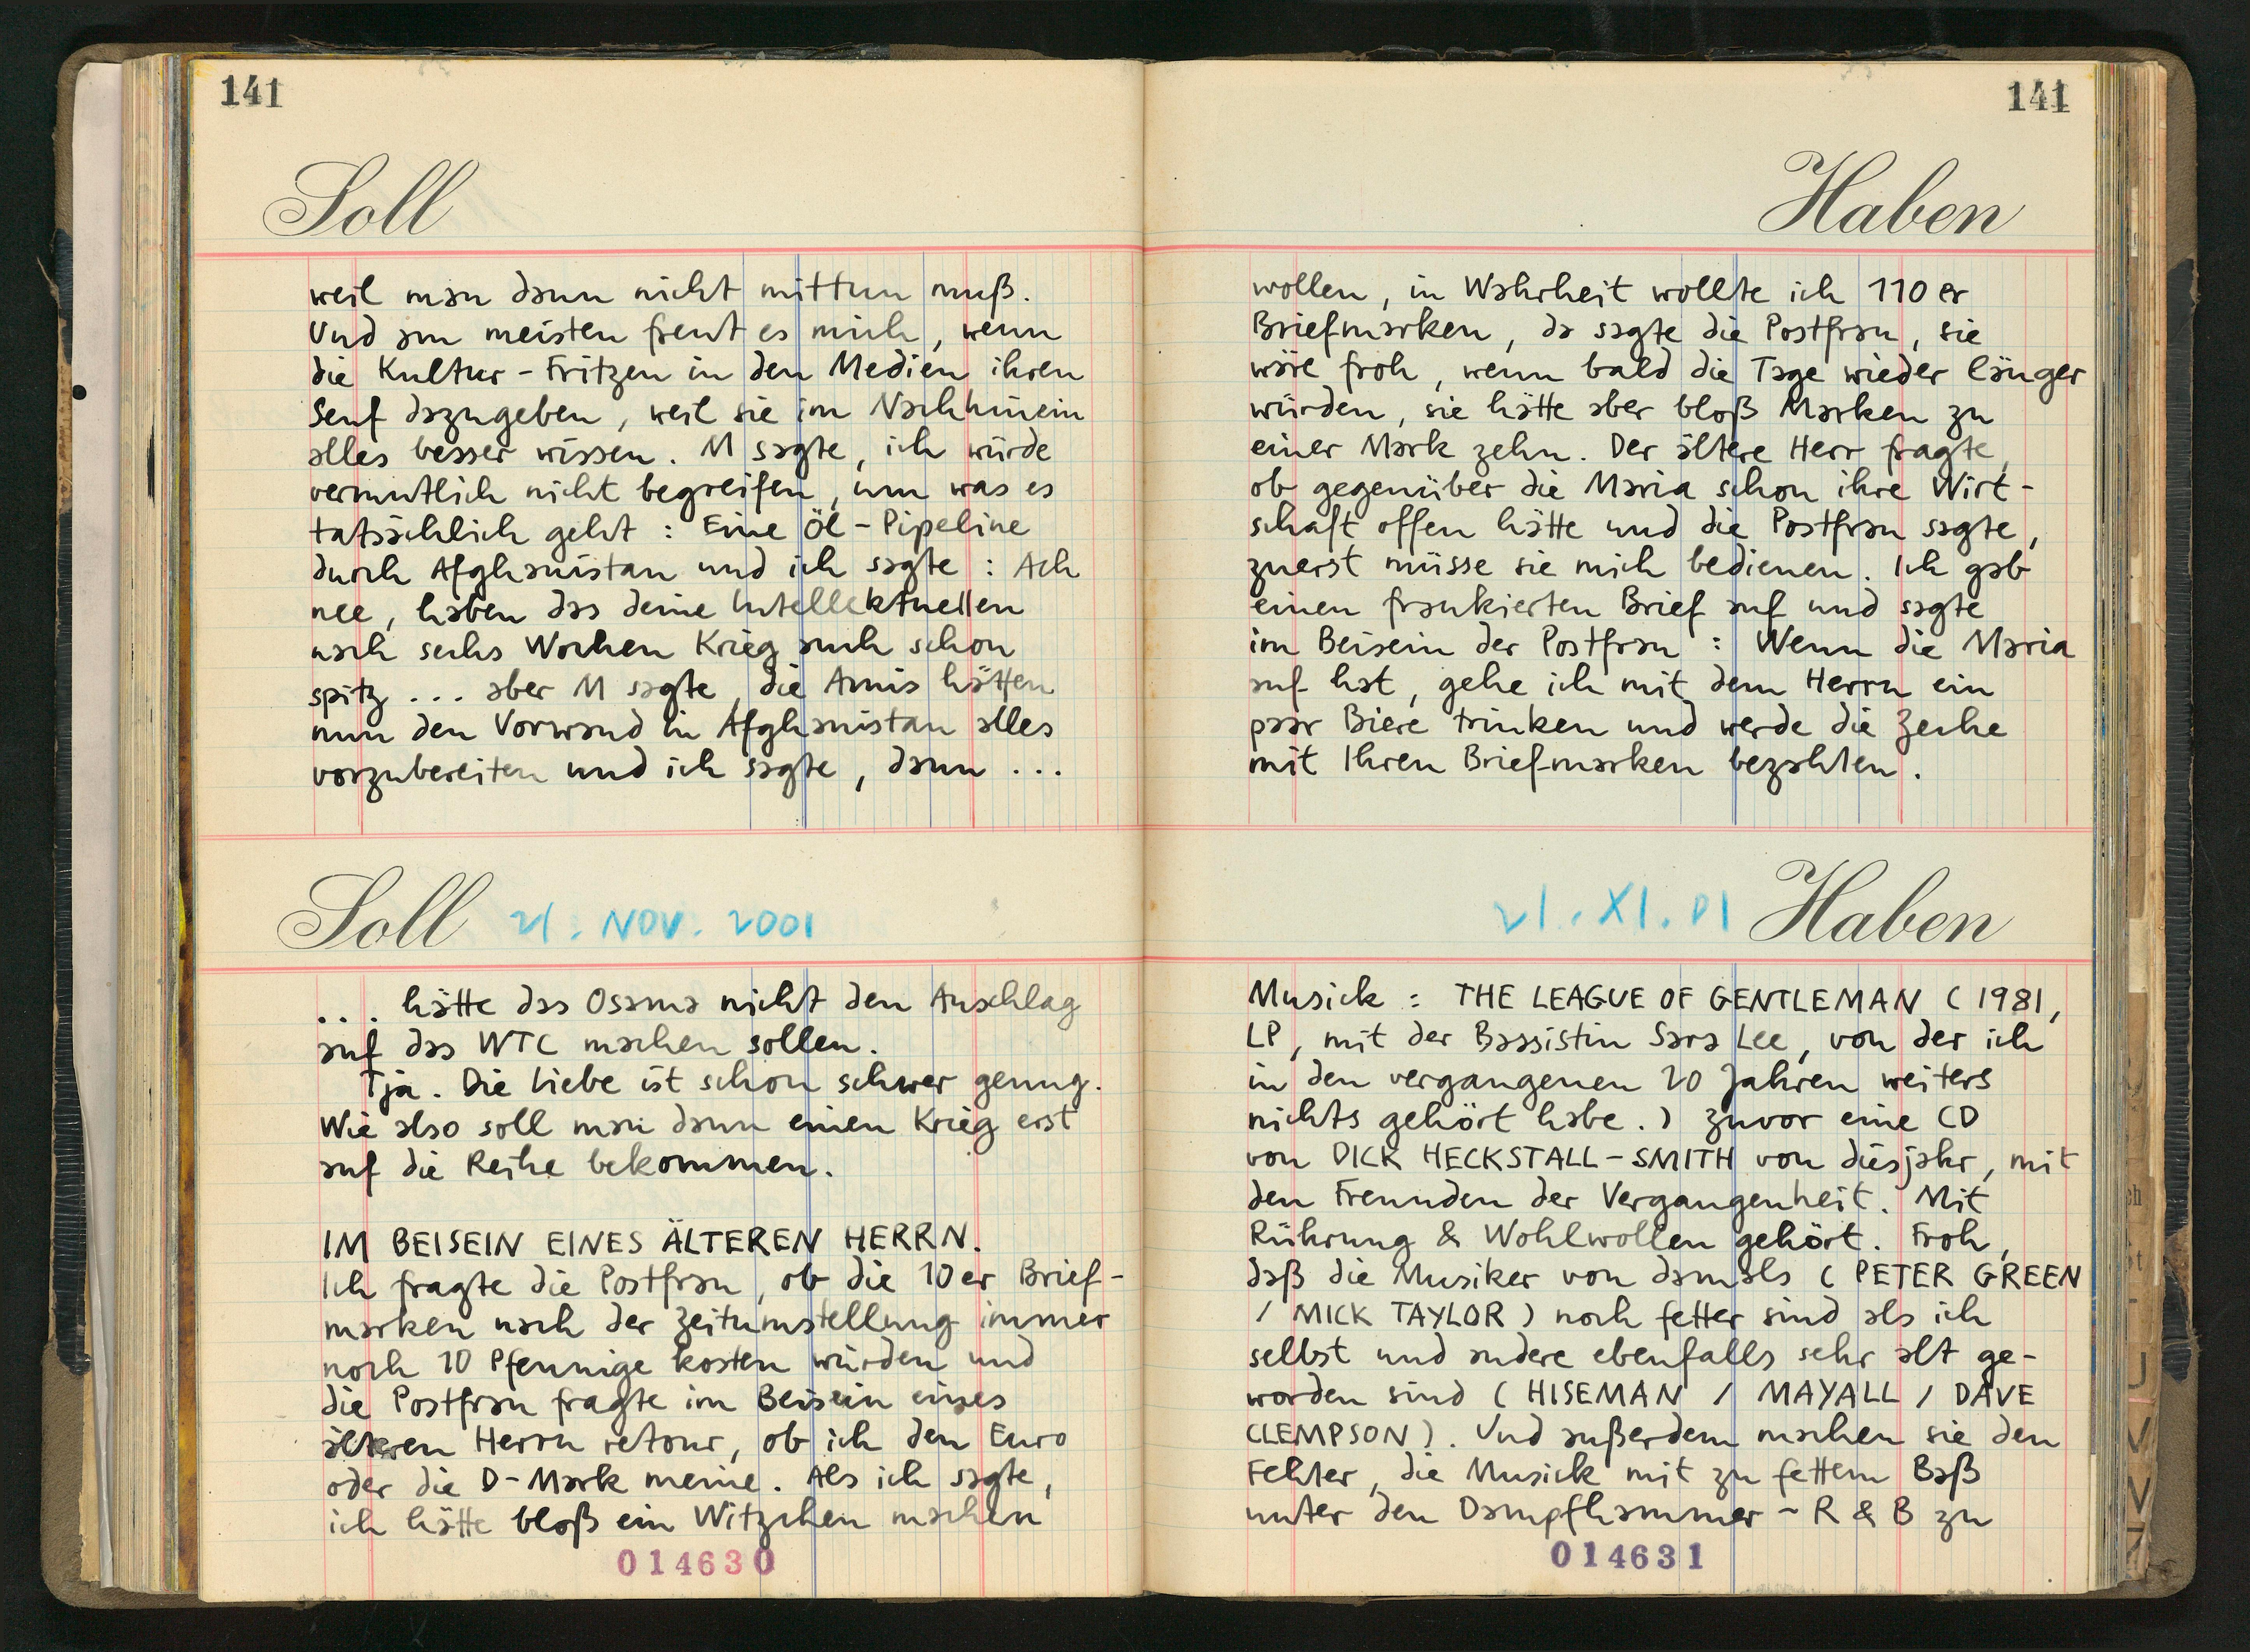 141
Soll
weil man dann nicht mittun muß.
Und am meisten freut es mich, wenn
die Kultur-Fritzen in den Medien ihren
Senf dazugeben, weil sie im Nachhinein
alles besser wissen. M sagte, ich würde
vermutlich nicht begreifen, um was es
tatsächlich geht: Eine Öl-Pipeline
durch Afghanistan und ich sagte: Ach
nee, haben das deine Intellektuellen
nach sechs Wochen Krieg auch schon
spitz ... aber M sagte, die Amis hätten
nun den Vorwand in Afghanistan alles
vorzubereiten und ich sagte, dann ...
Soll 21. NOV. 2001
... hätte das Osama nicht den Anschlag
auf das WTC machen sollen.
Tja. Die Liebe ist schon schwer genug.
Wie also soll man dann einen Krieg erst
auf die Reihe bekommen.
IM BEISEIN EINES ÄLTEREN HERRN.
Ich fragte die Postfrau, ob die 10er Brief-
marken nach der Zeitumstellung immer
noch 10 Pfennige kosten würden und
die Postfrau fragte im Beisein eines
älteren Herrn retour, ob ich den Euro
oder die D-Mark meine. Als ich sagte,
ich hätte bloß ein Witzchen machen
014630
141
Haben
wollen, in Wahrheit wollte ich 110er
Briefmarken, da sagte die Postfrau, sie
wäre froh, wenn bald die Tage wieder länger
würden, sie hätte aber bloß Marken zu
einer Mark zehn. Der ältere Herr fragte,
ob gegenüber die Maria schon ihre Wirt-
schaft offen hätte und die Postfrau sagte,
zuerst müsse sie mich bedienen. Ich gab
einen frankierten Brief auf und sagte
im Beisein der Postfrau: Wenn die Maria
auf hat, gehe ich mit dem Herrn ein
paar Biere trinken und werde die Zeche
mit Ihren Briefmarken bezahlen.
21. XI. 01 Haben
Musick: THE LEAGUE OF GENTLEMAN (1981,
LP, mit der Bassistin Sara Lee, von der ich
in den vergangenen 20 Jahren weiters
nichts gehört habe.) Zuvor eine CD
von DICK HECKSTALL-SMITH von diesjahr, mit
den Freunden der Vergangenheit. Mit
Rührung & Wohlwollen gehört. Froh,
daß die Musiker von damals (PETER GREEN
/ MICK TAYLOR) noch fetter sind als ich
selbst und andere ebenfalls sehr alt ge-
worden sind (HISEMAN / MAYALL / DAVE
CLEMPSON). Und außerdem machen sie den
Fehler, die Musick mit zu fettem Baß
unter den Dampfhammer-R & B zu
014631